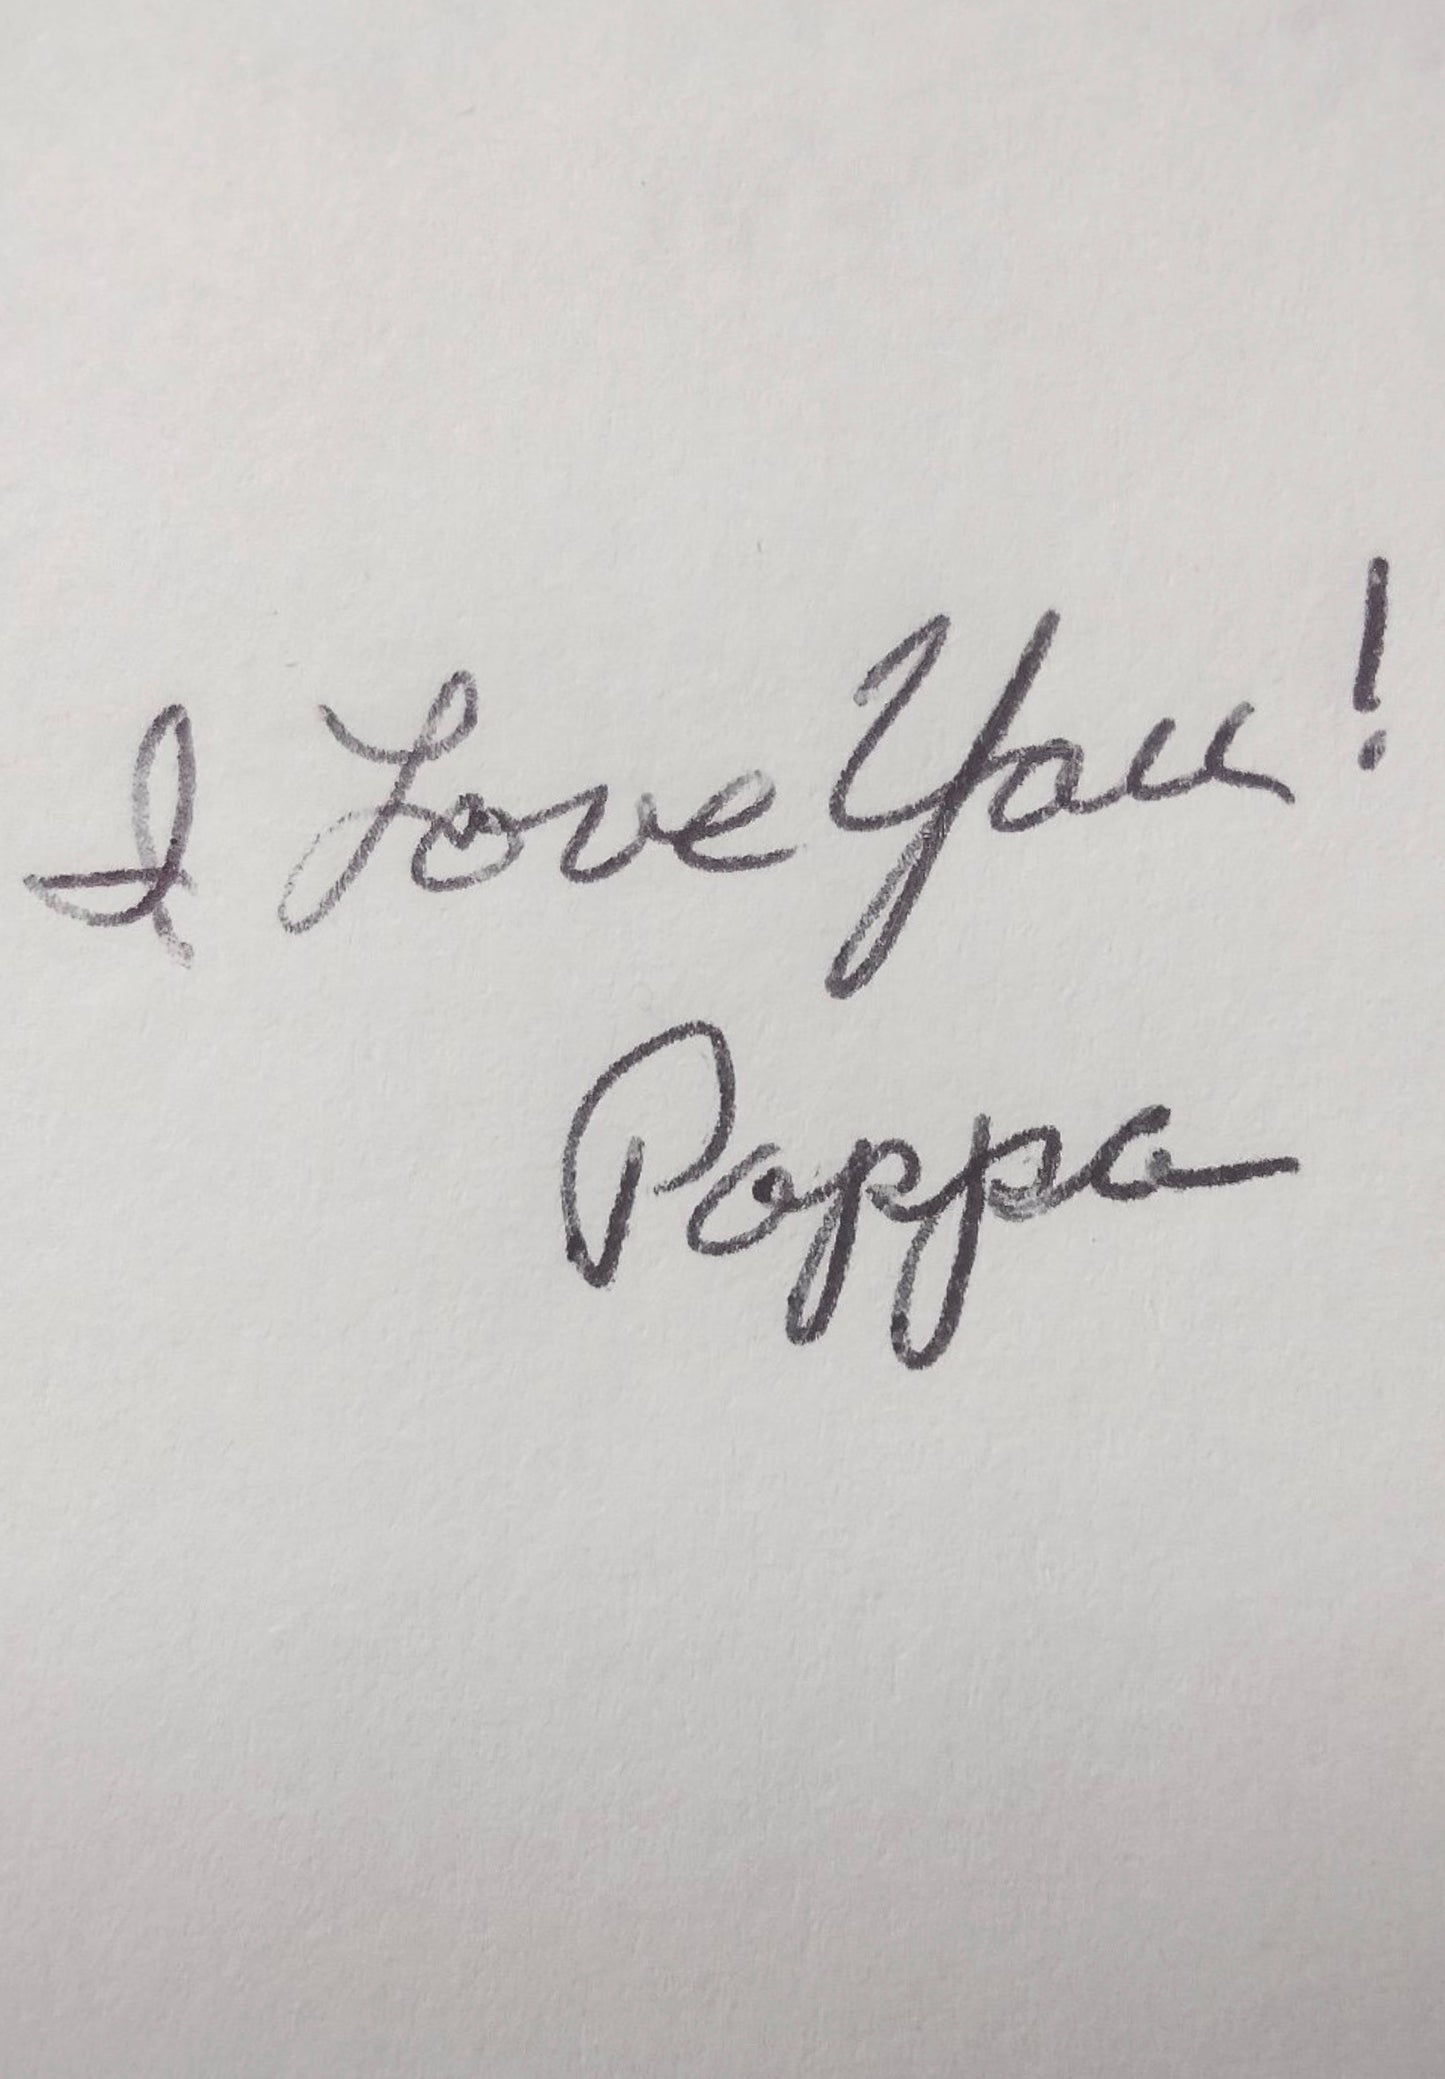 I Love You!
Poppa